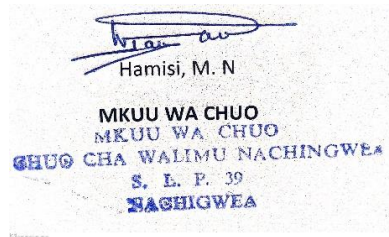 Hamisi, M. N
MKUU WA CHUO
MKUU WA CHUO
CHUO CHA WALIMU NACHINGWEA
S. L. P. 39
NACHIGWEA